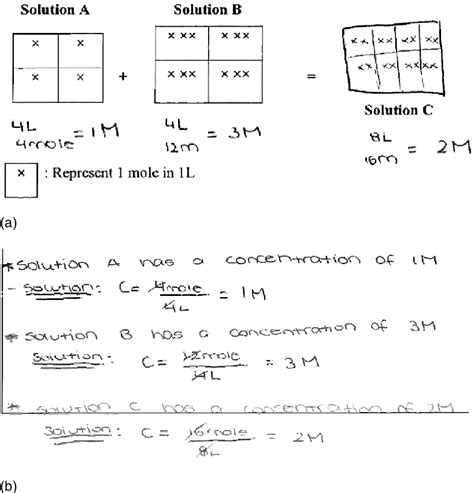 Solution A Solution B
x x x xx x xx xx xx xx xx
x x + x xx x xx = xx xx xx xx
Solution C
4L
4mole = 1M
4L
12m = 3M
8L
16m = 2M
x : Represent 1 mole in 1L
(a)
* Solution A has a concentration of 1M
- Solution: C = 4mole
4L = 1M
* Solution B has a concentration of 3M
Solution: C = 12mole
4L = 3M
* Solution C has a concentration of 2M
Solution: C = 16mole
8L = 2M
(b)